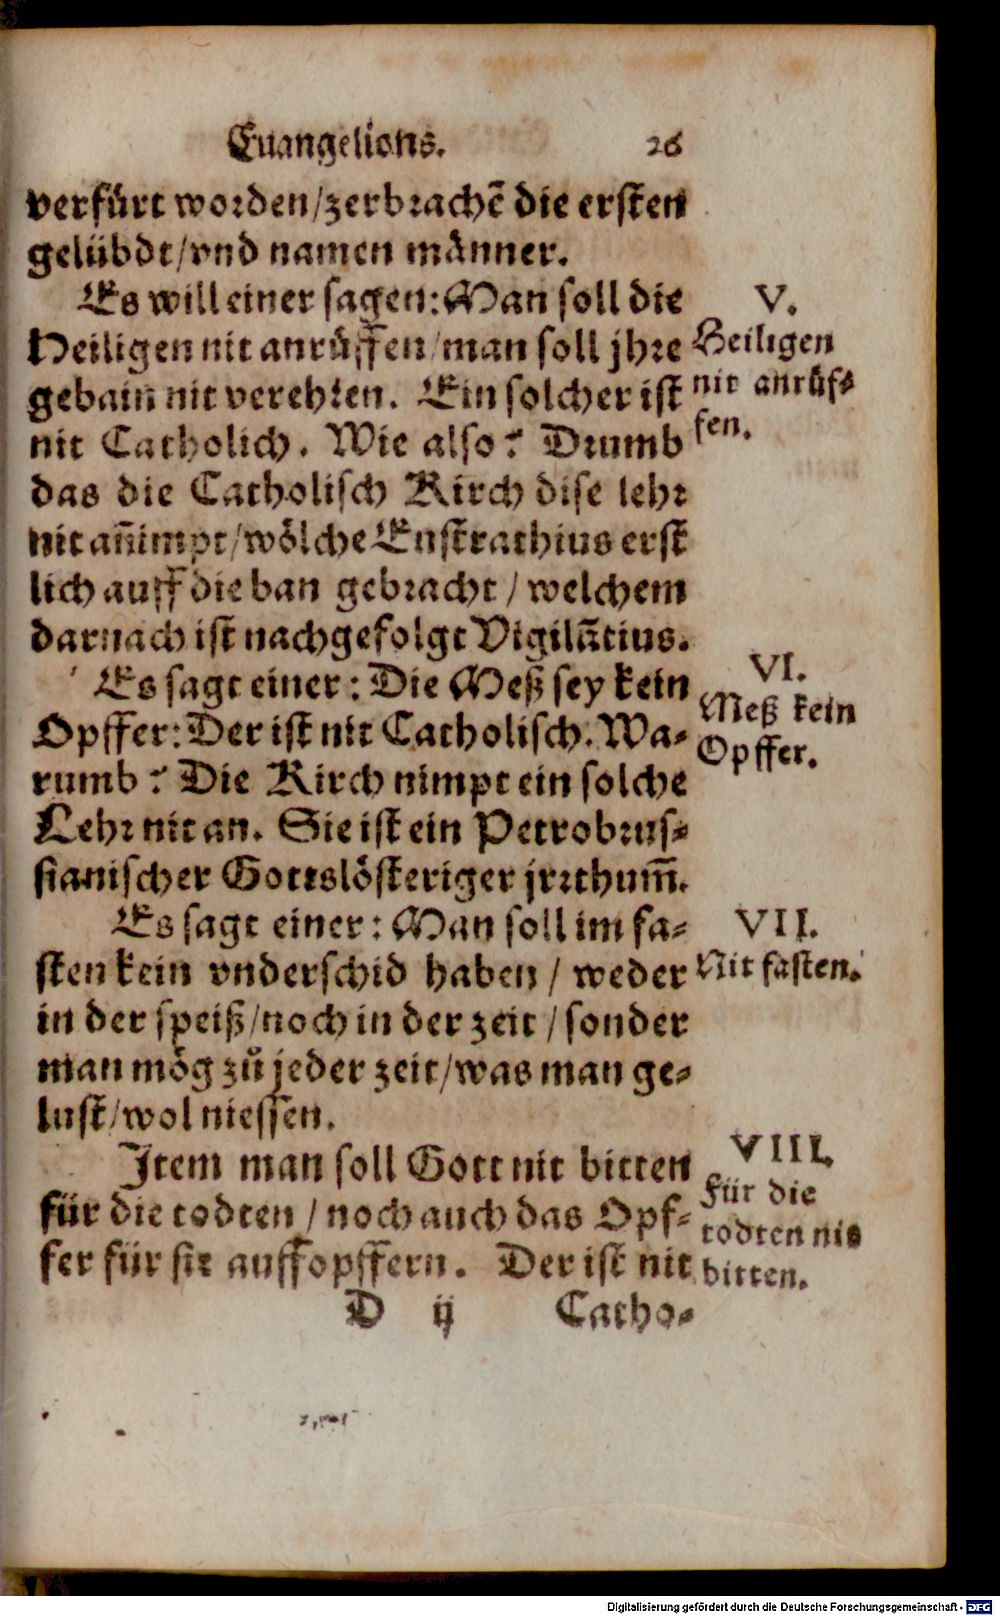 Euangelions. 26
verfürt worden/zerbrachē die ersten
gelübdt/vnd namen männer.
Es will einer sagen: Man soll die
Heiligen nit anrůffen/man soll jhre
gebain nit verehren. Ein solcher ist
nit Catholich. Wie also? Drumb
das die Catholisch Kirch dise lehr
nit añimpt/wölche Eustrathius erst
lich auff die ban gebracht/welchem
darnach ist nachgefolgt Vigilātius.
V.
Heiligen
nit anrůf-
fen.
Es sagt einer: Die Meß sey kein
Opffer: Der ist nit Catholisch. Wa-
rumb? Die Kirch nimpt ein solche
Lehr nit an. Sie ist ein Petrobrus-
sianischer Gottslösteriger jrrthum̃.
VI.
Meß kein
Opffer.
Es sagt einer: Man soll im fa-
sten kein vnderschid haben/weder
in der speiß/noch in der zeit/sonder
man mög zů jeder zeit/was man ge-
lust/wol niessen.
VII.
Nit fasten.
Item man soll Gott nit bitten
für die todten/noch auch das Opf-
fer für sie auffopffern. Der ist nit
VIII.
Für die
todten nit
bitten.
D ij Catho-
Digitalisierung gefördert durch die Deutsche Forschungsgemeinschaft - DFG